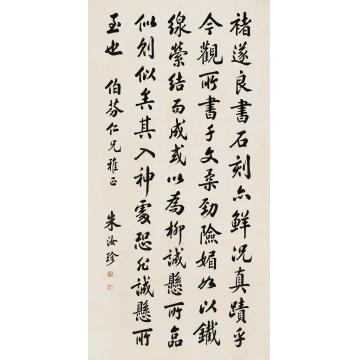 褚遂良書石刻亦鮮況真蹟乎
今觀所書千文柔勁險媚如以鐵
線縈結而成或以為柳誠懸所臨
似則似矣其入神處恐非誠懸所
至也 伯芬仁兄雅正
朱汝珍